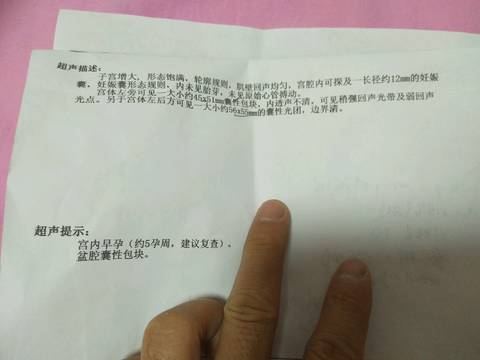 超声描述：
子宫增大，形态饱满，轮廓规则，肌壁回声均匀，宫腔内可探及一长径约12mm的妊娠
囊，妊娠囊形态规则，内未见胎芽，未见原始心管搏动。
宫体左旁可见一大小约45x51mm囊性包块，内透声不清，可见稍强回声光带及弱回声
光点。另于宫体左后方可见一大小约56x55mm的囊性光团，边界清。
超声提示：
宫内早孕（约5孕周，建议复查）。
盆腔囊性包块。